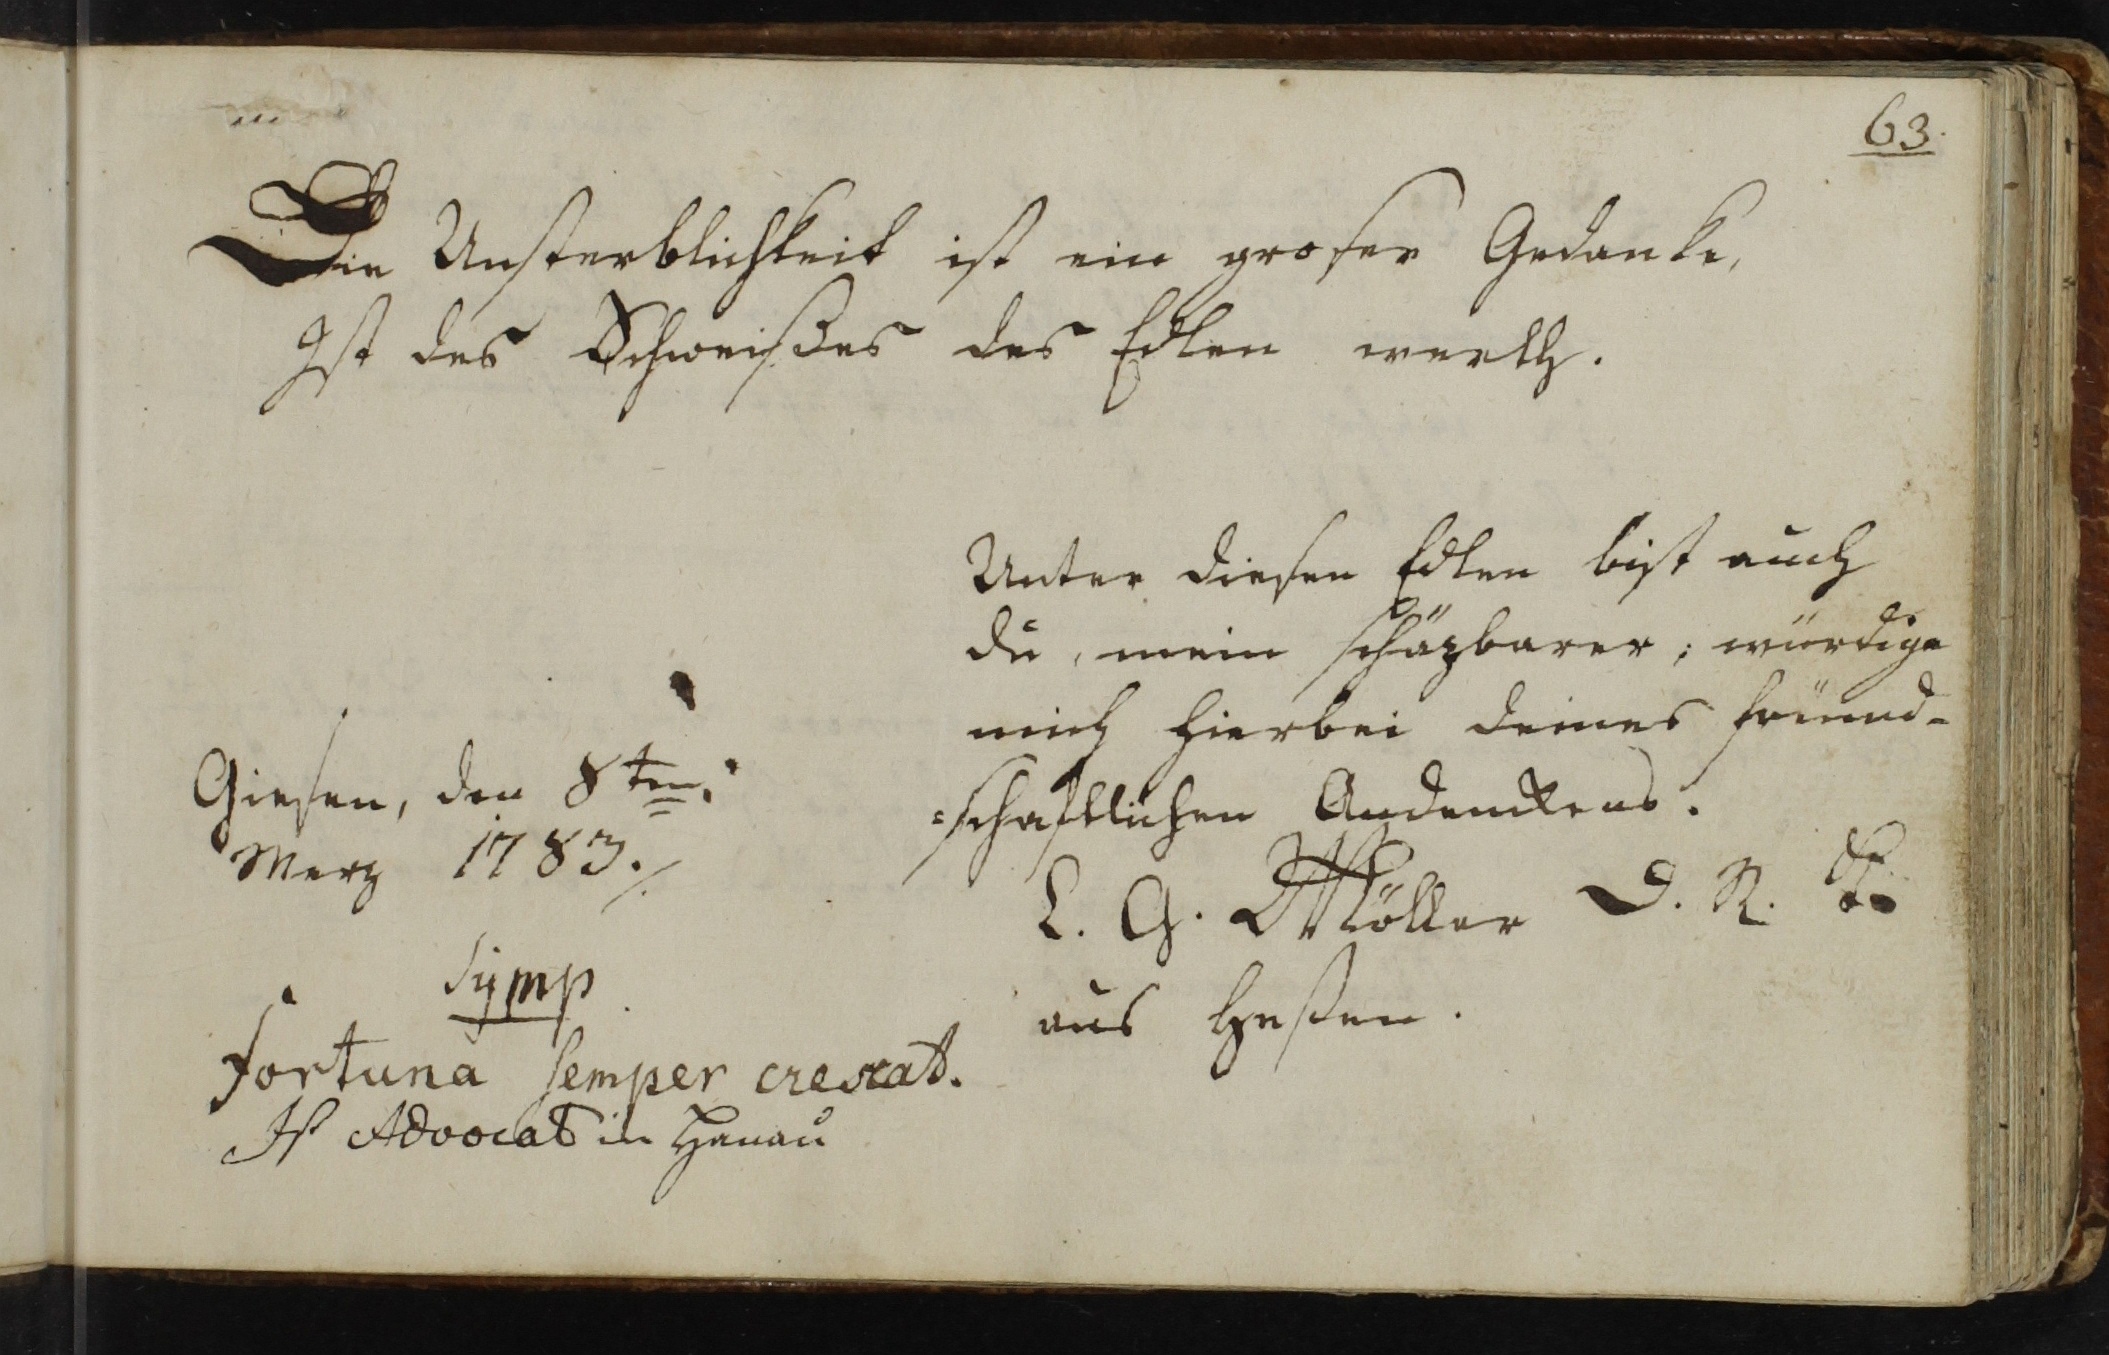 63.
Die Unsterblichkeit ist ein groser Gedanke,
Ist des Schweißes des Edlen werth.
Unter diesen Edlen bist auch
du, mein schäzbarer; würdige
mich hierbei deines freund-
=schaftlichen Andenckens.
Giesen, den 8ten
Merz 1783.
L. G. Möller D. R. B.
aus Hessen.
Symb
fortuna semper crescat.
Ist Advocat in Hanau